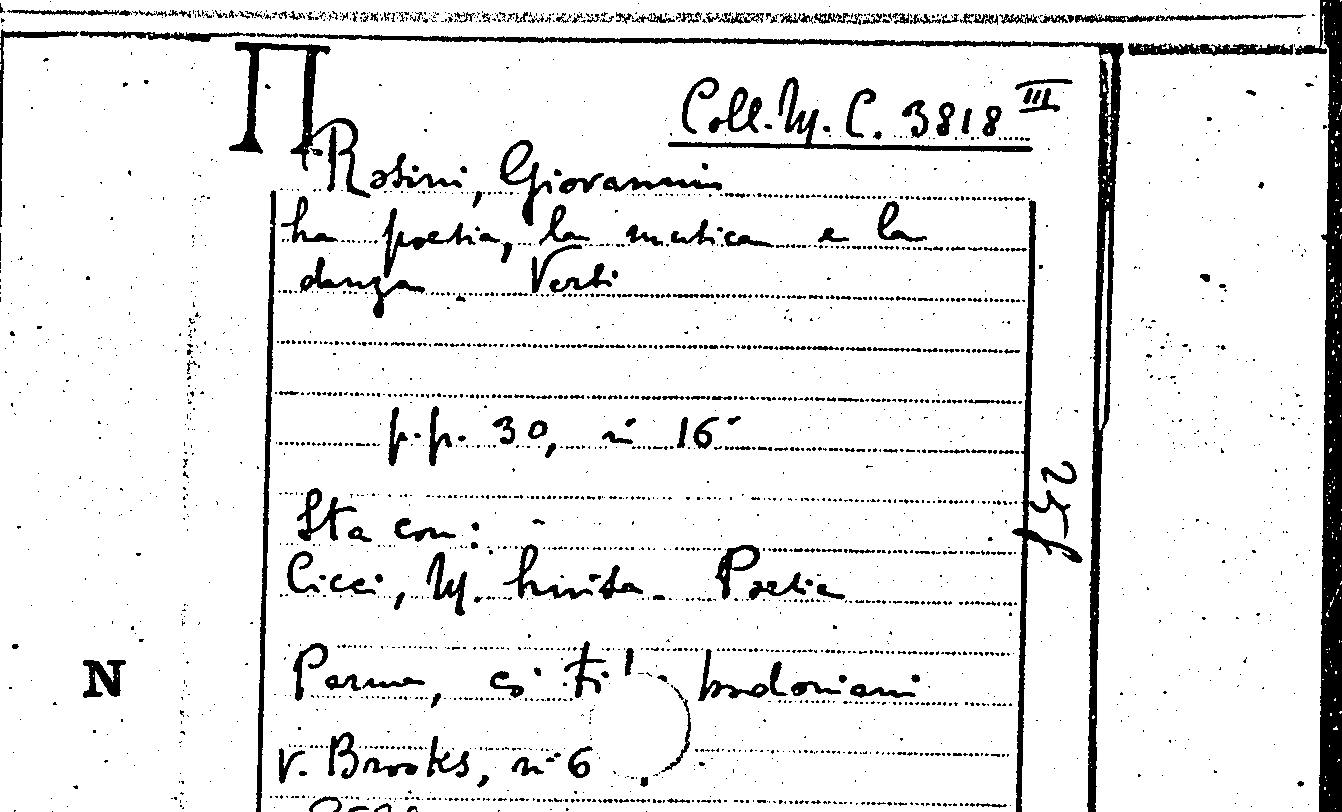 Π
Coll. M. C. 3818 III
Rosini, Giovanni
La poesia, la musica e la
danza. Versi
p.p. 30, in 16°
25f
Sta con:
Cicci, M. Luisa. Poesia
Parma, co' tipi bodoniani
N
v. Brooks, n° 6